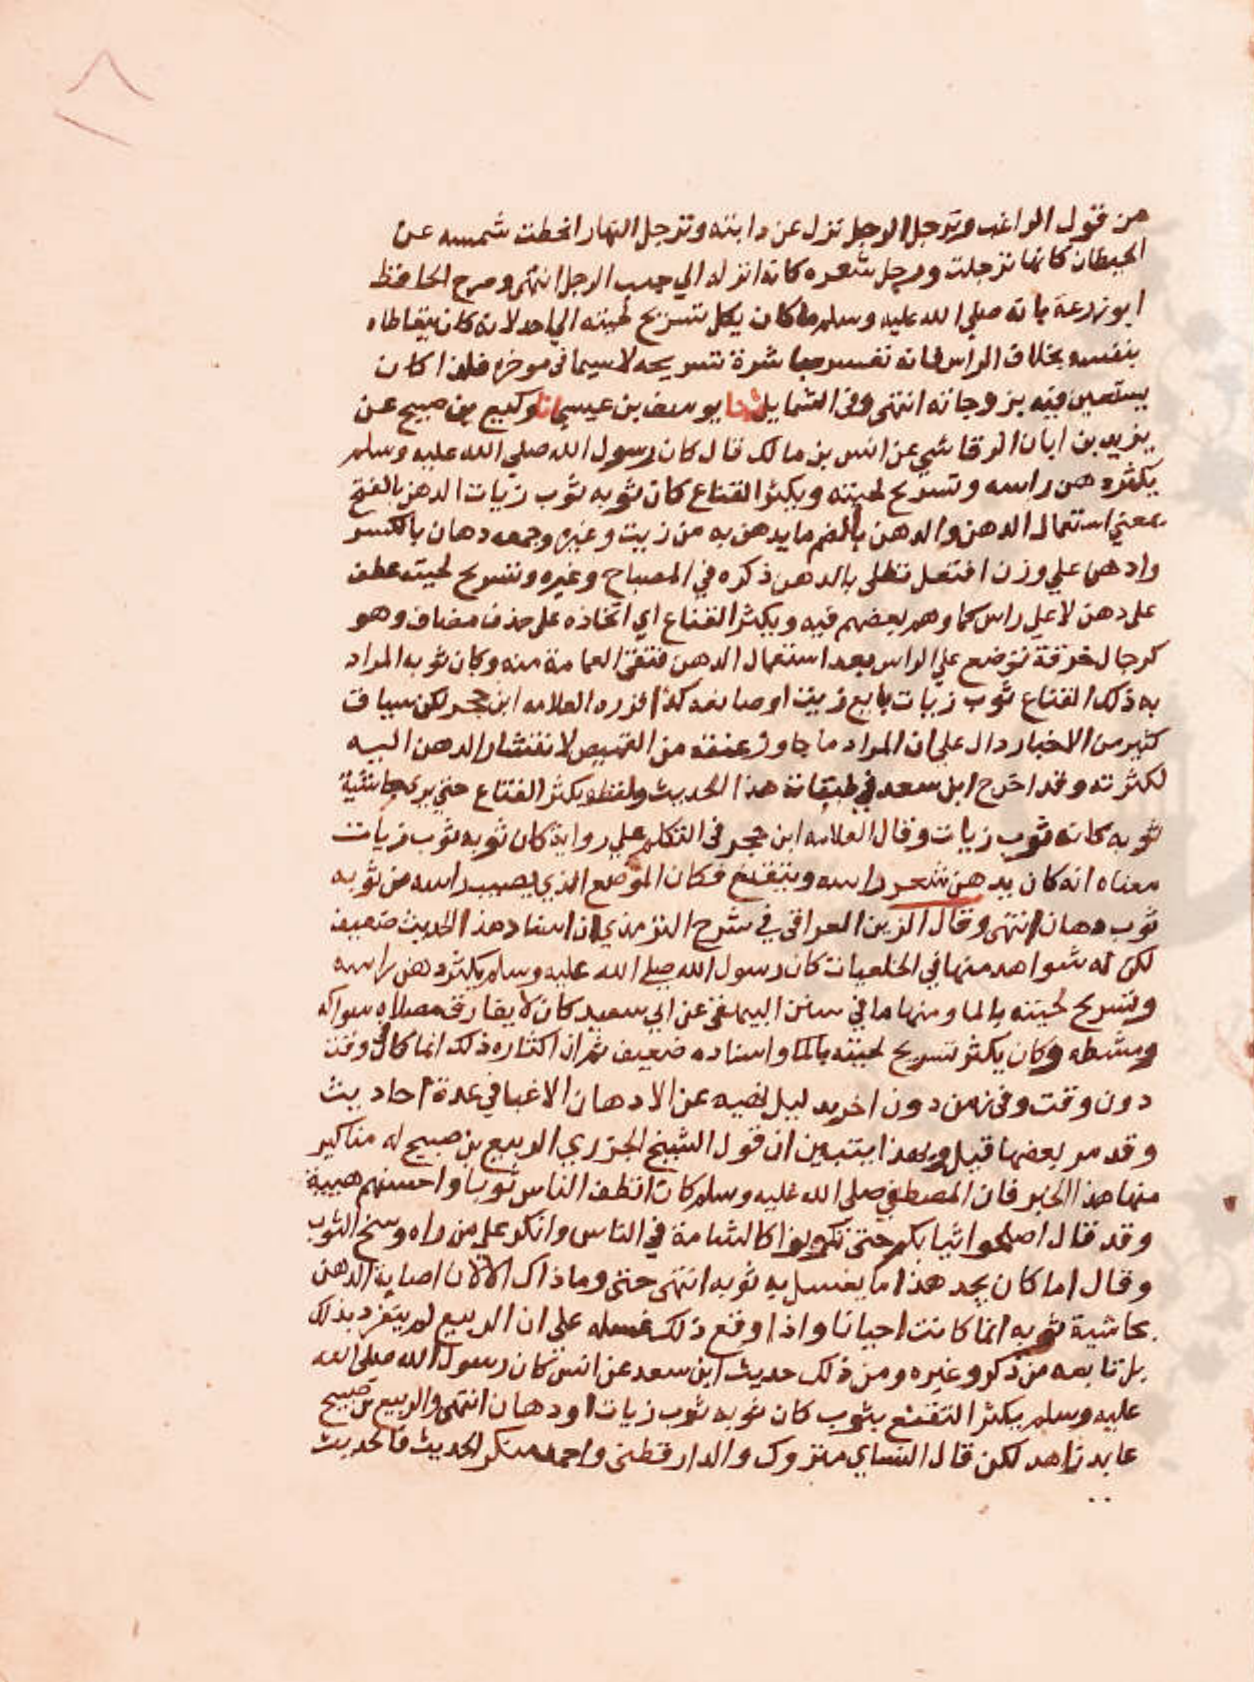 من قول الراغب وترجل الرجل نزل عن دابته وترجل النهار انحطت شمسه عن
الحيطان كانها ترجلت ورجل شعره كانه انزله الي حيث الرجل انتهى وصرح الحافظ
ابو زرعة بانه صلى الله عليه وسلم ما كان يكل تسريح لحيته الي احد لانه كان يتعاطاه
بنفسه بخلاف الراس فانه تعسر مباشرة تسريحه لاسيما في موخره فلذا كان
يستعين فيه بزوجاته انتهى وفي الشمايل ثنا يوسف بن عيسي انا وكيع بن صبيح عن
يزيد بن ابان الرقاشي عن انس بن مالك قال كان رسول الله صلي الله عليه وسلم
يكثر دهن راسه وتسريح لحيته ويكثر القناع كان ثوبه ثوب زيات الدهن بالفتح
بمعني استعمال الدهن والدهن بالضم ما يدهن به من زيت وغيره وجمعه دهان بالكسر
وادهن علي وزن افتعل تطلى بالدهن ذكره في المصباح وغيره وتسريح لحيته عطف
على دهن لا علي راس كما وهم بعضهم فيه ويكثر القناع اي اتخاذه على حذف مضاف وهو
كرجال خرقة توضع علي الراس بعد استعمال الدهن فتقى العمامة منه وكان ثوبه المراد
به ذلك القناع ثوب زيات بايع زيت او صانعه كذا قرره العلامه ابن حجر لكن سياق
كثير من الاخبار دال على ان المراد ما جاوز عنقه من القميص لانتشار الدهن اليه
لكثرته وقد اخرج ابن سعد في طبقاته هذا الحديث ولفظه يكثر القناع حتي يرى حاشية
ثوبه كانه ثوب زيات وقال العلامه ابن حجر في التكلم علي رواية كان ثوبه ثوب زيات
معناه انه كان يدهن شعر راسه ويتقنع فكان الموضع الذي يصيب راسه من ثوبه
ثوب دهان انتهى وقال الزين العراقي في شرح الترمذي ان اسناد هذا الحديث ضعيف
لكن له شواهد منها في الخلعيات كان رسول الله صلي الله عليه وسلم يكثر دهن راسه
وتسريح لحيته بالما ومنها ما في سنن البيهقي عن ابي سعيد كان لا يفارق مصلاه سواكه
ومشطه وكان يكثر تسريح لحيته بالما واسناده ضعيف ثم ان اكثاره ذلك انما كان في وقت
دون وقت وفي زمن دون اخر بدليل نهيه عن الادهان الا غبا في عدة احاديث
وقد مر بعضها قبل وبهذا يتبين ان قول الشيخ الجزري الربيع بن صبيح له مناكير
منها هذا الخبر فان المصطفي صلى الله عليه وسلم كان انظف الناس ثوبا واحسنهم هيية
وقد قال اصلحوا ثيابكم حتى تكونوا كالشامة في الناس وانكر علي من راه وسخ الثوب
وقال اما كان يجد هذا ما يغسل به ثوبه انتهى حتى وما ذاك الا لان اصابة الدهن
بحاشية ثوبه انما كانت احيانا واذا وقع ذلك غسله على ان الربيع لم يتفرد بذلك
بل تابعه من ذكر وغيره ومن ذلك حديث ابن سعد عن انس كان رسول الله صلى الله
عليه وسلم يكثر التقنع بثوب كان ثوبه ثوب زيات او دهان انتهى والربيع بن صبيح
عابد زاهد لكن قال النساي متروك والدار قطني واحمد منكر الحديث فالحديث